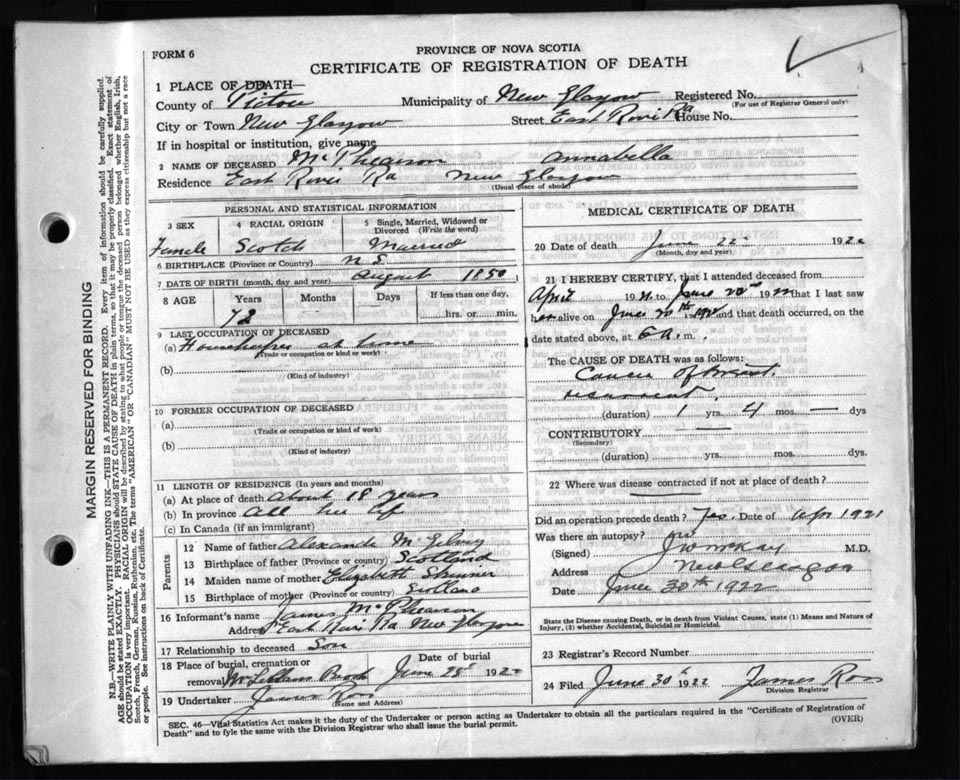 FORM 6
PROVINCE OF NOVA SCOTIA
CERTIFICATE OF REGISTRATION OF DEATH
1 PLACE OF DEATH—
County of Pictou Municipality of New Glasgow Registered No.
(For use of Registrar General only)
City or Town New Glasgow Street East River Rd House No.
If in hospital or institution, give name
2 NAME OF DECEASED McPhearson Annabella
Residence East River Rd New Glasgow
(Usual place of abode)
PERSONAL AND STATISTICAL INFORMATION
3 SEX
4 RACIAL ORIGIN
5 Single, Married, Widowed or Divorced (Write the word)
Female Scotch Married
6 BIRTHPLACE (Province or Country) N S
7 DATE OF BIRTH (month, day and year) August 1850
8 AGE Years Months Days If less than one day,
72 hrs. or min.
9 LAST OCCUPATION OF DECEASED
(a) Housekeeper at home
(Trade or occupation or kind or work)
(b)
(Kind of industry)
10 FORMER OCCUPATION OF DECEASED
(a)
(Trade or occupation or kind of work)
(b)
(Kind of industry)
11 LENGTH OF RESIDENCE (In years and months)
(a) At place of death About 18 years
(b) In province All her lif
(c) In Canada (if an immigrant)
Parents
12 Name of father Alexande
13 Birthplace of father (Province or country) Scotland
14 Maiden name of mother Elizabeth Skinner
15 Birthplace of mother (Province or country) Scotland
16 Informant's name James McPhearson
Address East River Rd New Glasgow
17 Relationship to deceased Son
18 Place of burial, cremation or Date of burial
removal McLellans Brook June 1922
19 Undertaker James Ross
(Name and Address)
MEDICAL CERTIFICATE OF DEATH
20 Date of death June 22 1922
(Month, day and year)
21 I HEREBY CERTIFY, that I attended deceased from
April 192 to June 1922 that I last saw
her alive on June 20th and that death occurred, on
date stated above, at 6 A. m.
The CAUSE OF DEATH was as follows:
Cancer of breast
recurrent.
(duration) 1 yrs. 4 mos. — dys
CONTRIBUTORY —
(Secondary)
(duration) yrs. mos. dys
22 Where was disease contracted if not at place of death?
Did an operation precede death? Yes Date of Apr 1921
Was there an autopsy? no
(Signed) M.D.
Address New Glasgow
Date June 30th 1922
State the Disease causing Death, or in death from Violent Causes, state (1) Means and Nature of Injury, (2) whether Accidental, Suicidal or Homicidal.
23 Registrar's Record Number
24 Filed June 30th 1922 James Ross
Division Registrar
SEC. 46—Vital Statistics Act makes it the duty of the Undertaker or person acting as Undertaker to obtain all the particulars required in the "Certificate of Registration of
Death" and to fyle the same with the Division Registrar who shall issue the burial permit.
(OVER)
MARGIN RESERVED FOR BINDING
N.B.—WRITE PLAINLY WITH UNFADING INK—THIS IS A PERMANENT RECORD. Every item of information should be carefully supplied.
AGE should be stated EXACTLY. PHYSICIANS should STATE CAUSE OF DEATH in plain terms, so that it may be properly classified. Exact statement of
OCCUPATION is very important. RACIAL ORIGIN will be described by stating to what people or tongue the deceased person belonged whether English, Irish,
Scotch, French, German, Russian, Ruthenian, etc. The terms "AMERICAN" OR "CANADIAN" MUST NOT BE USED as they express citizenship but not a race
or people. See instructions on back of Certificate.